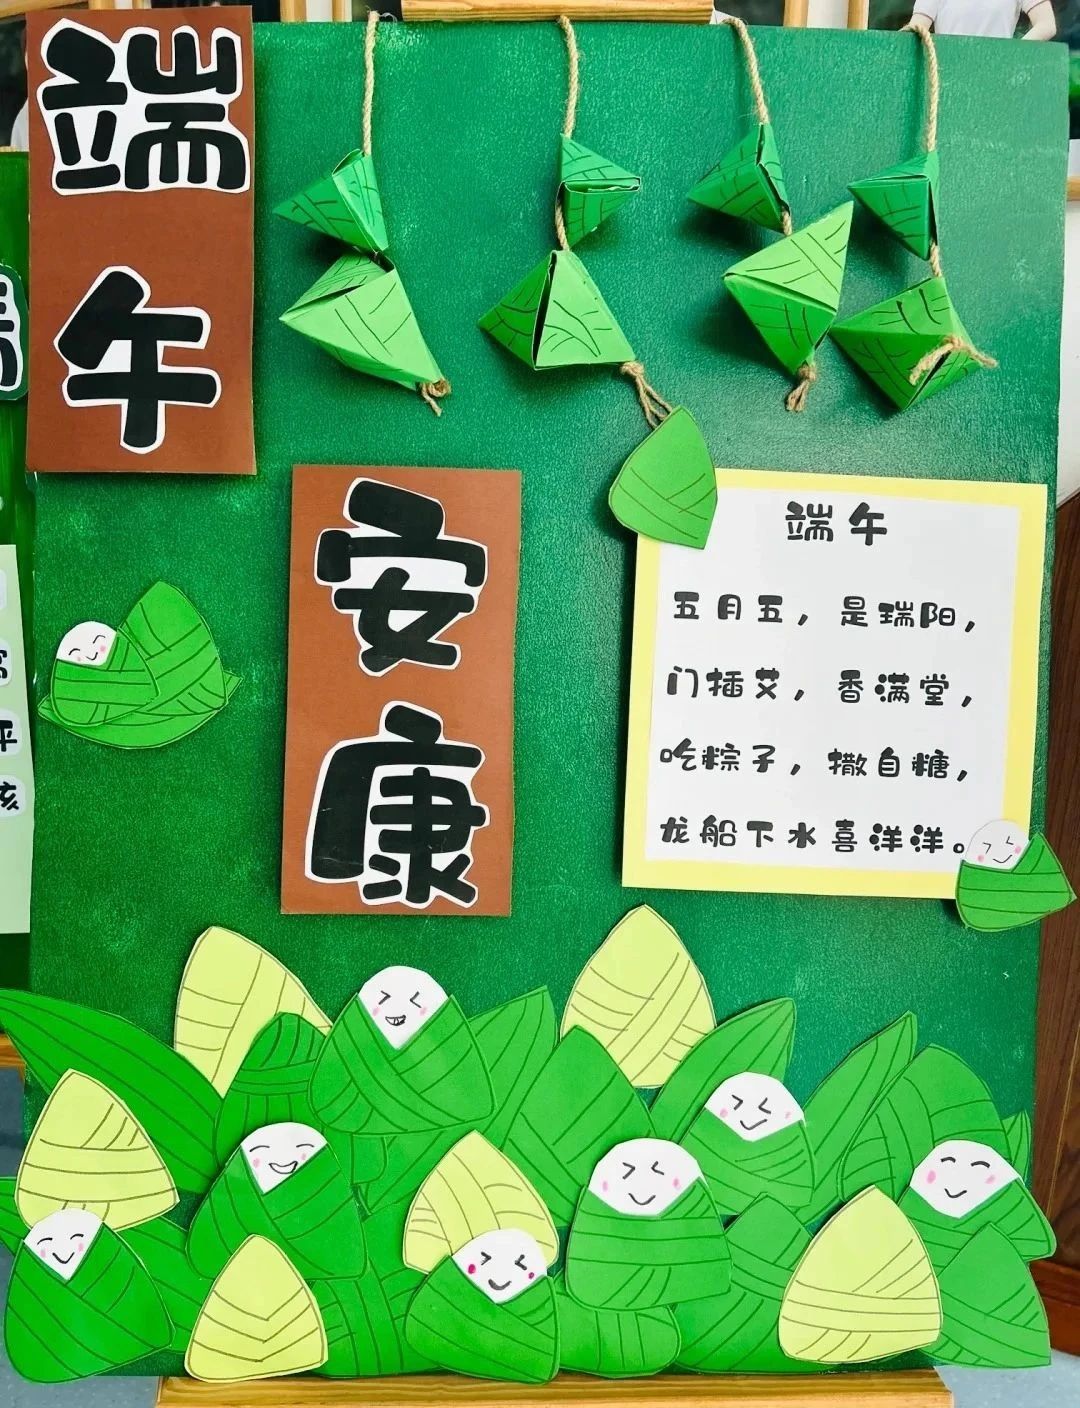 端午
安康
端午
五月五，是瑞阳，
门插艾，香满堂，
吃粽子，撒自糖，
龙船下水喜洋洋。
平
孩